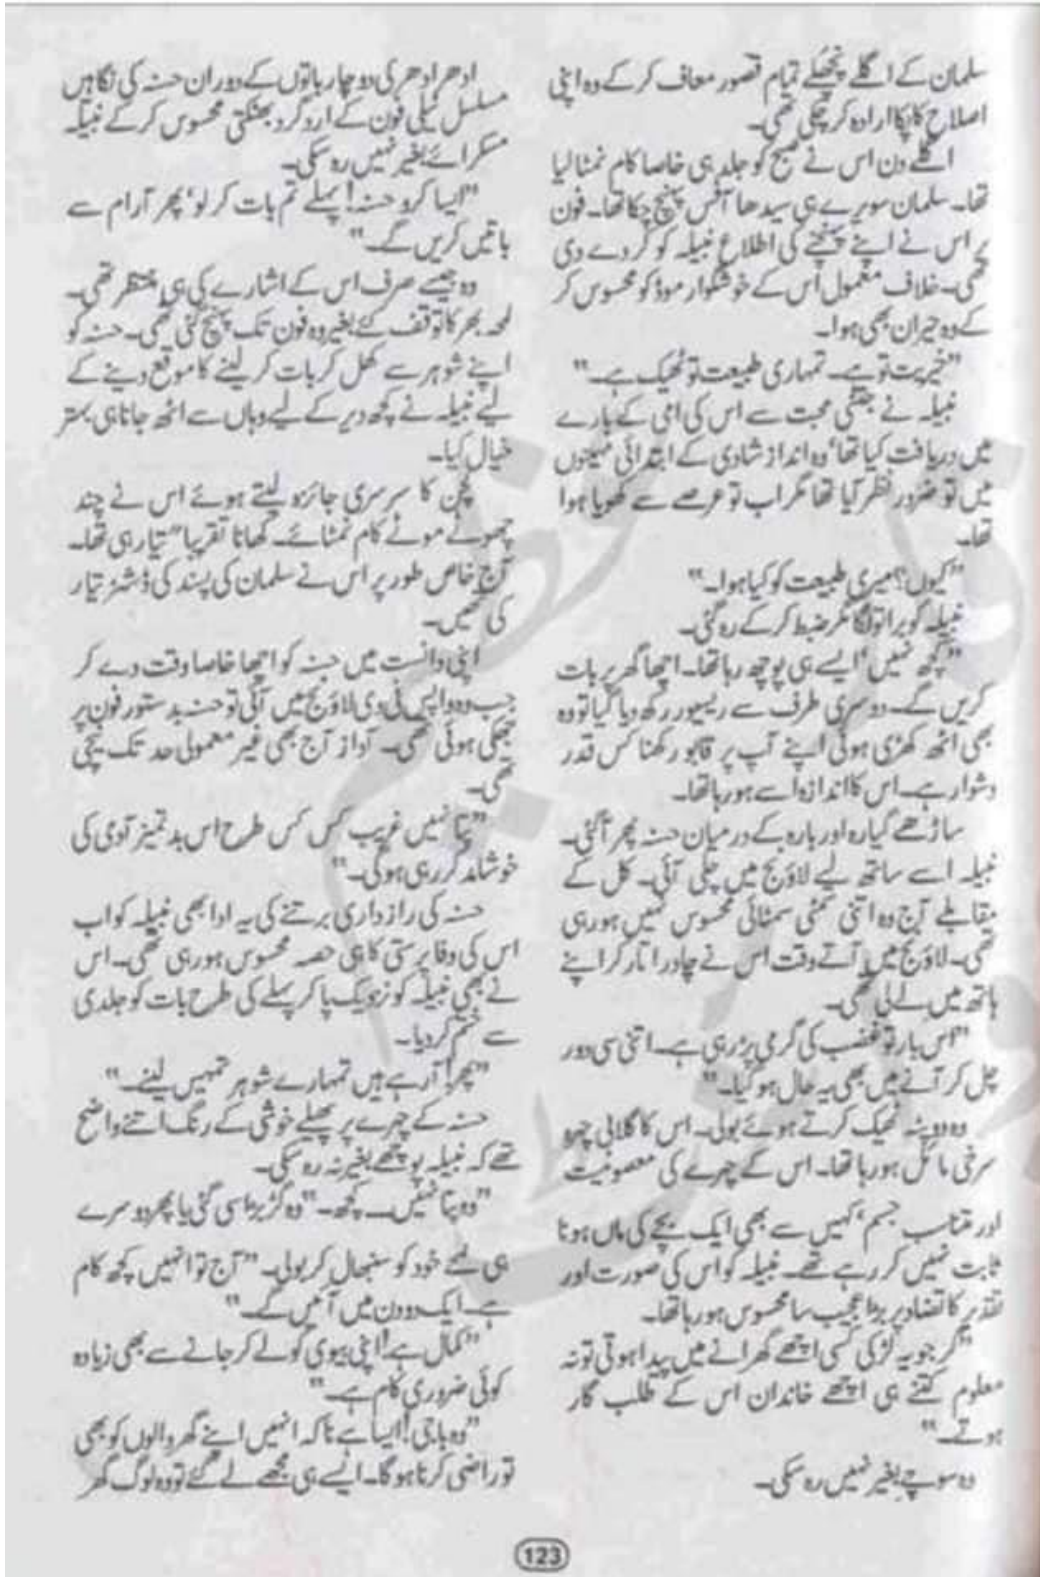 سلمان کے اگلے پچھلے تمام قصور معاف کر کے وہ اپنی
اصلاح کا پکا ارادہ کر چکی تھی۔
اگلے دن اس نے صبح کو جلد ہی خاصا کام نمٹا لیا
تھا۔ سلمان سویرے ہی سیدھا آفس پہنچ چکا تھا۔ فون
پر اس نے اپنے پہنچنے کی اطلاع نبیلہ کو کر دے دی
تھی۔ خلاف معمول اس کے خوشگوار موڈ کو محسوس کر
کے وہ حیران بھی ہوا۔
"خیریت تو ہے۔ تمہاری طبیعت تو ٹھیک ہے۔"
نبیلہ نے جتنی محبت سے اس کی امی کے بارے
میں دریافت کیا تھا' وہ انداز شادی کے ابتدائی مہینوں
میں تو ضرور نظر آیا تھا مگر اب تو عرصے سے کھویا ہوا
تھا۔
"کیوں؟ میری طبیعت کو کیا ہوا۔"
نبیلہ کو برا تو لگا مگر ضبط کر کے رہ گئی۔
"کچھ نہیں' ایسے ہی پوچھ رہا تھا۔ اچھا گھر پر بات
کریں گے۔ دوسری طرف سے ریسیور رکھ دیا گیا تو وہ
بھی اٹھ کھڑی ہوئی اپنے آپ پر قابو رکھنا کس قدر
دشوار ہے۔ اس کا اندازہ اسے ہو رہا تھا۔
ساڑھے گیارہ اور بارہ کے درمیان حسنہ پھر آ گئی۔
نبیلہ اسے ساتھ لیے لاؤنج میں چلی آئی۔ کل کے
مقابلے آج وہ اتنی سمٹی سمٹائی محسوس نہیں ہو رہی
تھی۔ لاؤنج میں آتے وقت اس نے چادر اتار کر اپنے
ہاتھ میں لے لی تھی۔
"اس بار تو غضب کی گرمی پڑ رہی ہے۔ اتنی سی دور
چل کر آنے میں بھی یہ حال ہو گیا۔"
وہ دوپٹہ ٹھیک کرتے ہوئے بولی۔ اس کا گلابی چہرہ
سرخی مائل ہو رہا تھا۔ اس کے چہرے کی معصومیت
اور متناسب جسم' کہیں سے بھی ایک بچے کی ماں ہونا
ثابت نہیں کر رہے تھے۔ نبیلہ کو اس کی صورت اور
تقدیر کا تضاد پر بڑا عجیب سا محسوس ہو رہا تھا۔
"گر جو یہ لڑکی کسی اچھے گھرانے میں پیدا ہوتی تو نہ
معلوم کتنے ہی اچھے خاندان اس کے طلب گار
ہوتے۔"
وہ سوچے بغیر نہیں رہ سکی۔
ادھر ادھر کی دو چار باتوں کے دوران حسنہ کی نگاہیں
مسلسل ٹیلی فون کے ارد گرد بھٹکتی محسوس کر کے نبیلہ
مسکرائے بغیر نہیں رہ سکی۔
"ایسا کرو حسنہ! پہلے تم بات کر لو' پھر آرام سے
باتیں کریں گے۔"
وہ جیسے صرف اس کے اشارے کی ہی منتظر تھی۔
لمحہ بھر کا توقف کئے بغیر وہ فون تک پہنچ گئی تھی۔ حسنہ کو
اپنے شوہر سے کھل کر بات کر لینے کا موقع دینے کے
لیے نبیلہ نے کچھ دیر کے لیے وہاں سے اٹھ جانا ہی بہتر
خیال کیا۔
کچن کا سرسری جائزہ لیتے ہوئے اس نے چند
چھوٹے موٹے کام نمٹائے۔ کھانا تقریبا" تیار ہی تھا۔
آج خاص طور پر اس نے سلمان کی پسند کی ڈشز تیار
کی تھیں۔
اپنی دانست میں حسنہ کو اچھا خاصا وقت دے کر
جب وہ واپس ٹی وی لاؤنج میں آئی تو حسنہ بدستور فون پر
جھکی ہوئی تھی۔ آواز آج بھی غیر معمولی حد تک نیچی
تھی۔
"پتا نہیں غریب کس کس طرح اس بدتمیز آدمی کی
خوشامد کر رہی ہو گی۔"
حسنہ کی رازداری برتنے کی یہ ادا بھی نبیلہ کو اب
اس کی وفا پرستی کا ہی حصہ محسوس ہو رہی تھی۔ اس
نے بھی نبیلہ کو نزدیک پا کر پہلے کی طرح بات کو جلدی
سے ختم کر دیا۔
"پھر! آ رہے ہیں تمہارے شوہر تمہیں لینے۔"
حسنہ کے چہرے پر پھیلے خوشی کے رنگ اتنے واضح
تھے کہ نبیلہ پوچھے بغیر نہ رہ سکی۔
"وہ پتا نہیں۔۔ کچھ۔" وہ گڑبڑا سی گئی یا پھر دوسرے
ہی لمحے خود کو سنبھال کر بولی۔ "آج تو انہیں کچھ کام
ہے۔ ایک دو دن میں آئیں گے۔"
"کمال ہے! اپنی بیوی کو لے کر جانے سے بھی زیادہ
کوئی ضروری کام ہے۔"
"وہ باجی! ایسا ہے نا کہ انہیں اپنے گھر والوں کو بھی
تو راضی کرنا ہو گا۔ ایسے ہی مجھے لے گئے تو وہ لوگ گھر
123